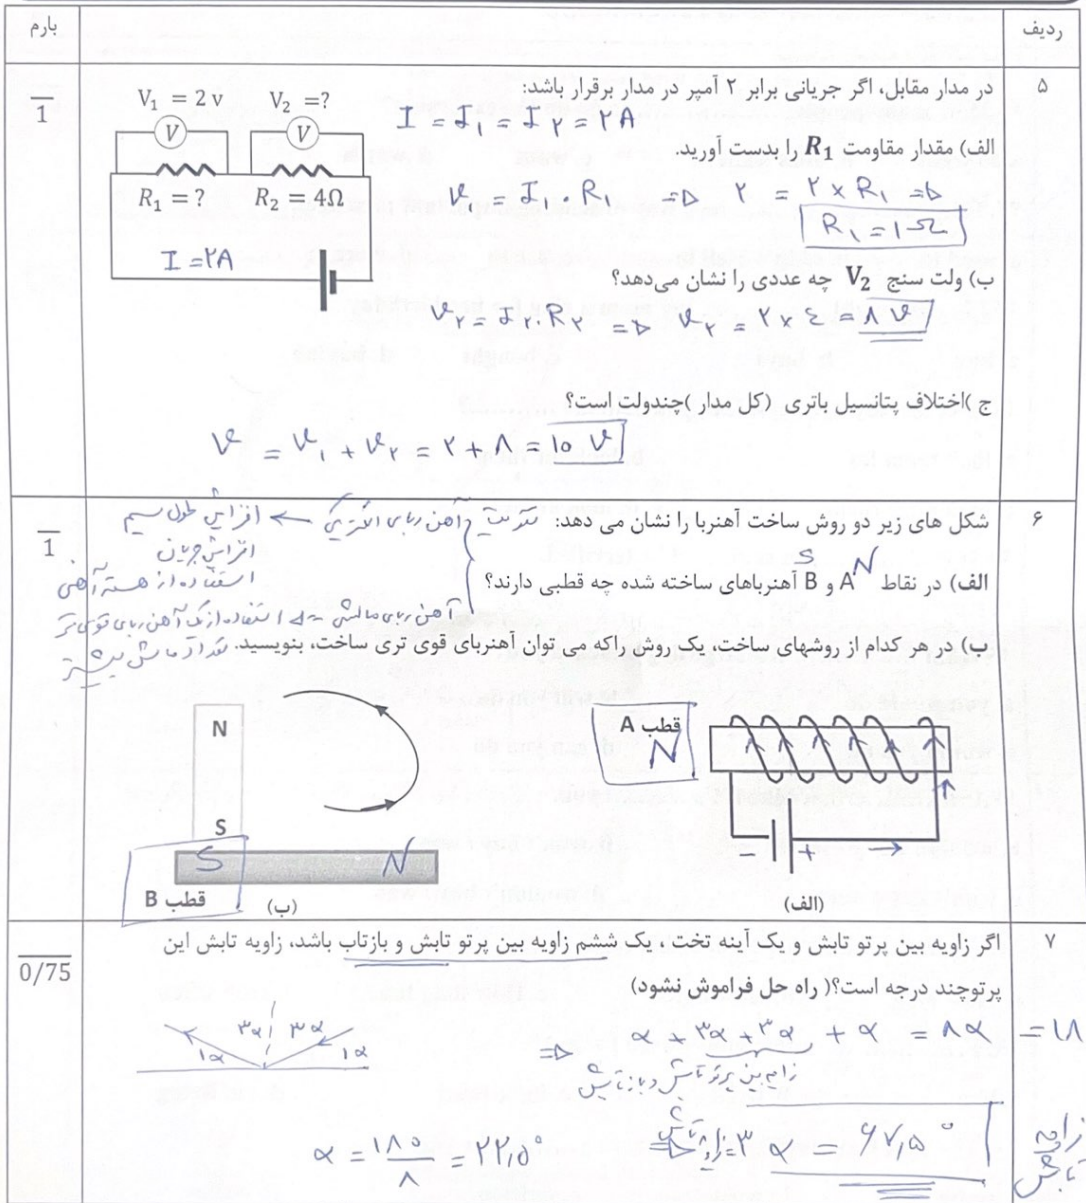 ردیف
بارم
۵
در مدار مقابل، اگر جریانی برابر ۲ آمپر در مدار برقرار باشد:
1
V₁ = 2 v V₂ =?
V V
R₁ = ? R₂ = 4Ω
I = ۲A
I = I₁ = I₂ = ۲A
الف) مقدار مقاومت R₁ را بدست آورید.
V₁ = I₁ . R₁ ⇒ ۲ = ۲ × R₁ ⇒
R₁ = ۱ Ω
ب) ولت سنج V₂ چه عددی را نشان می‌دهد؟
V₂ = I₂ . R₂ ⇒ V₂ = ۲ × ٤ = ۸ V
ج )اختلاف پتانسیل باتری (کل مدار )چندولت است؟
V = V₁ + V₂ = ۲ + ۸ = ۱۰ V
۶
شکل های زیر دو روش ساخت آهنربا را نشان می دهد:
1
آهن ربای الکتریکی ← افزایش طول سیم
افزایش جریان
استفاده از هسته آهنی
الف) در نقاط A و B آهنرباهای ساخته شده چه قطبی دارند؟
N S
آهن ربای مالشی ⇒ استفاده از یک آهن ربای قوی تر
ب) در هر کدام از روشهای ساخت، یک روش راکه می توان آهنربای قوی تری ساخت، بنویسید.
تعداد مالش بیشتر
قطب A
N
- +
(الف)
N
S
S N
قطب B
(ب)
۷
اگر زاویه بین پرتو تابش و یک آینه تخت ، یک ششم زاویه بین پرتو تابش و بازتاب باشد، زاویه تابش این
0/75
پرتوچند درجه است؟( راه حل فراموش نشود)
۳α ۳α
۱α ۱α
⇒ α + ۳α + ۳α + α = ۸α = ۱۸
زاویه بین پرتو تابش و بازتابش
α = ۱۸۰/۸ = ۲۲,۵°
۳α = ۶۷,۵°
زاویه تابش